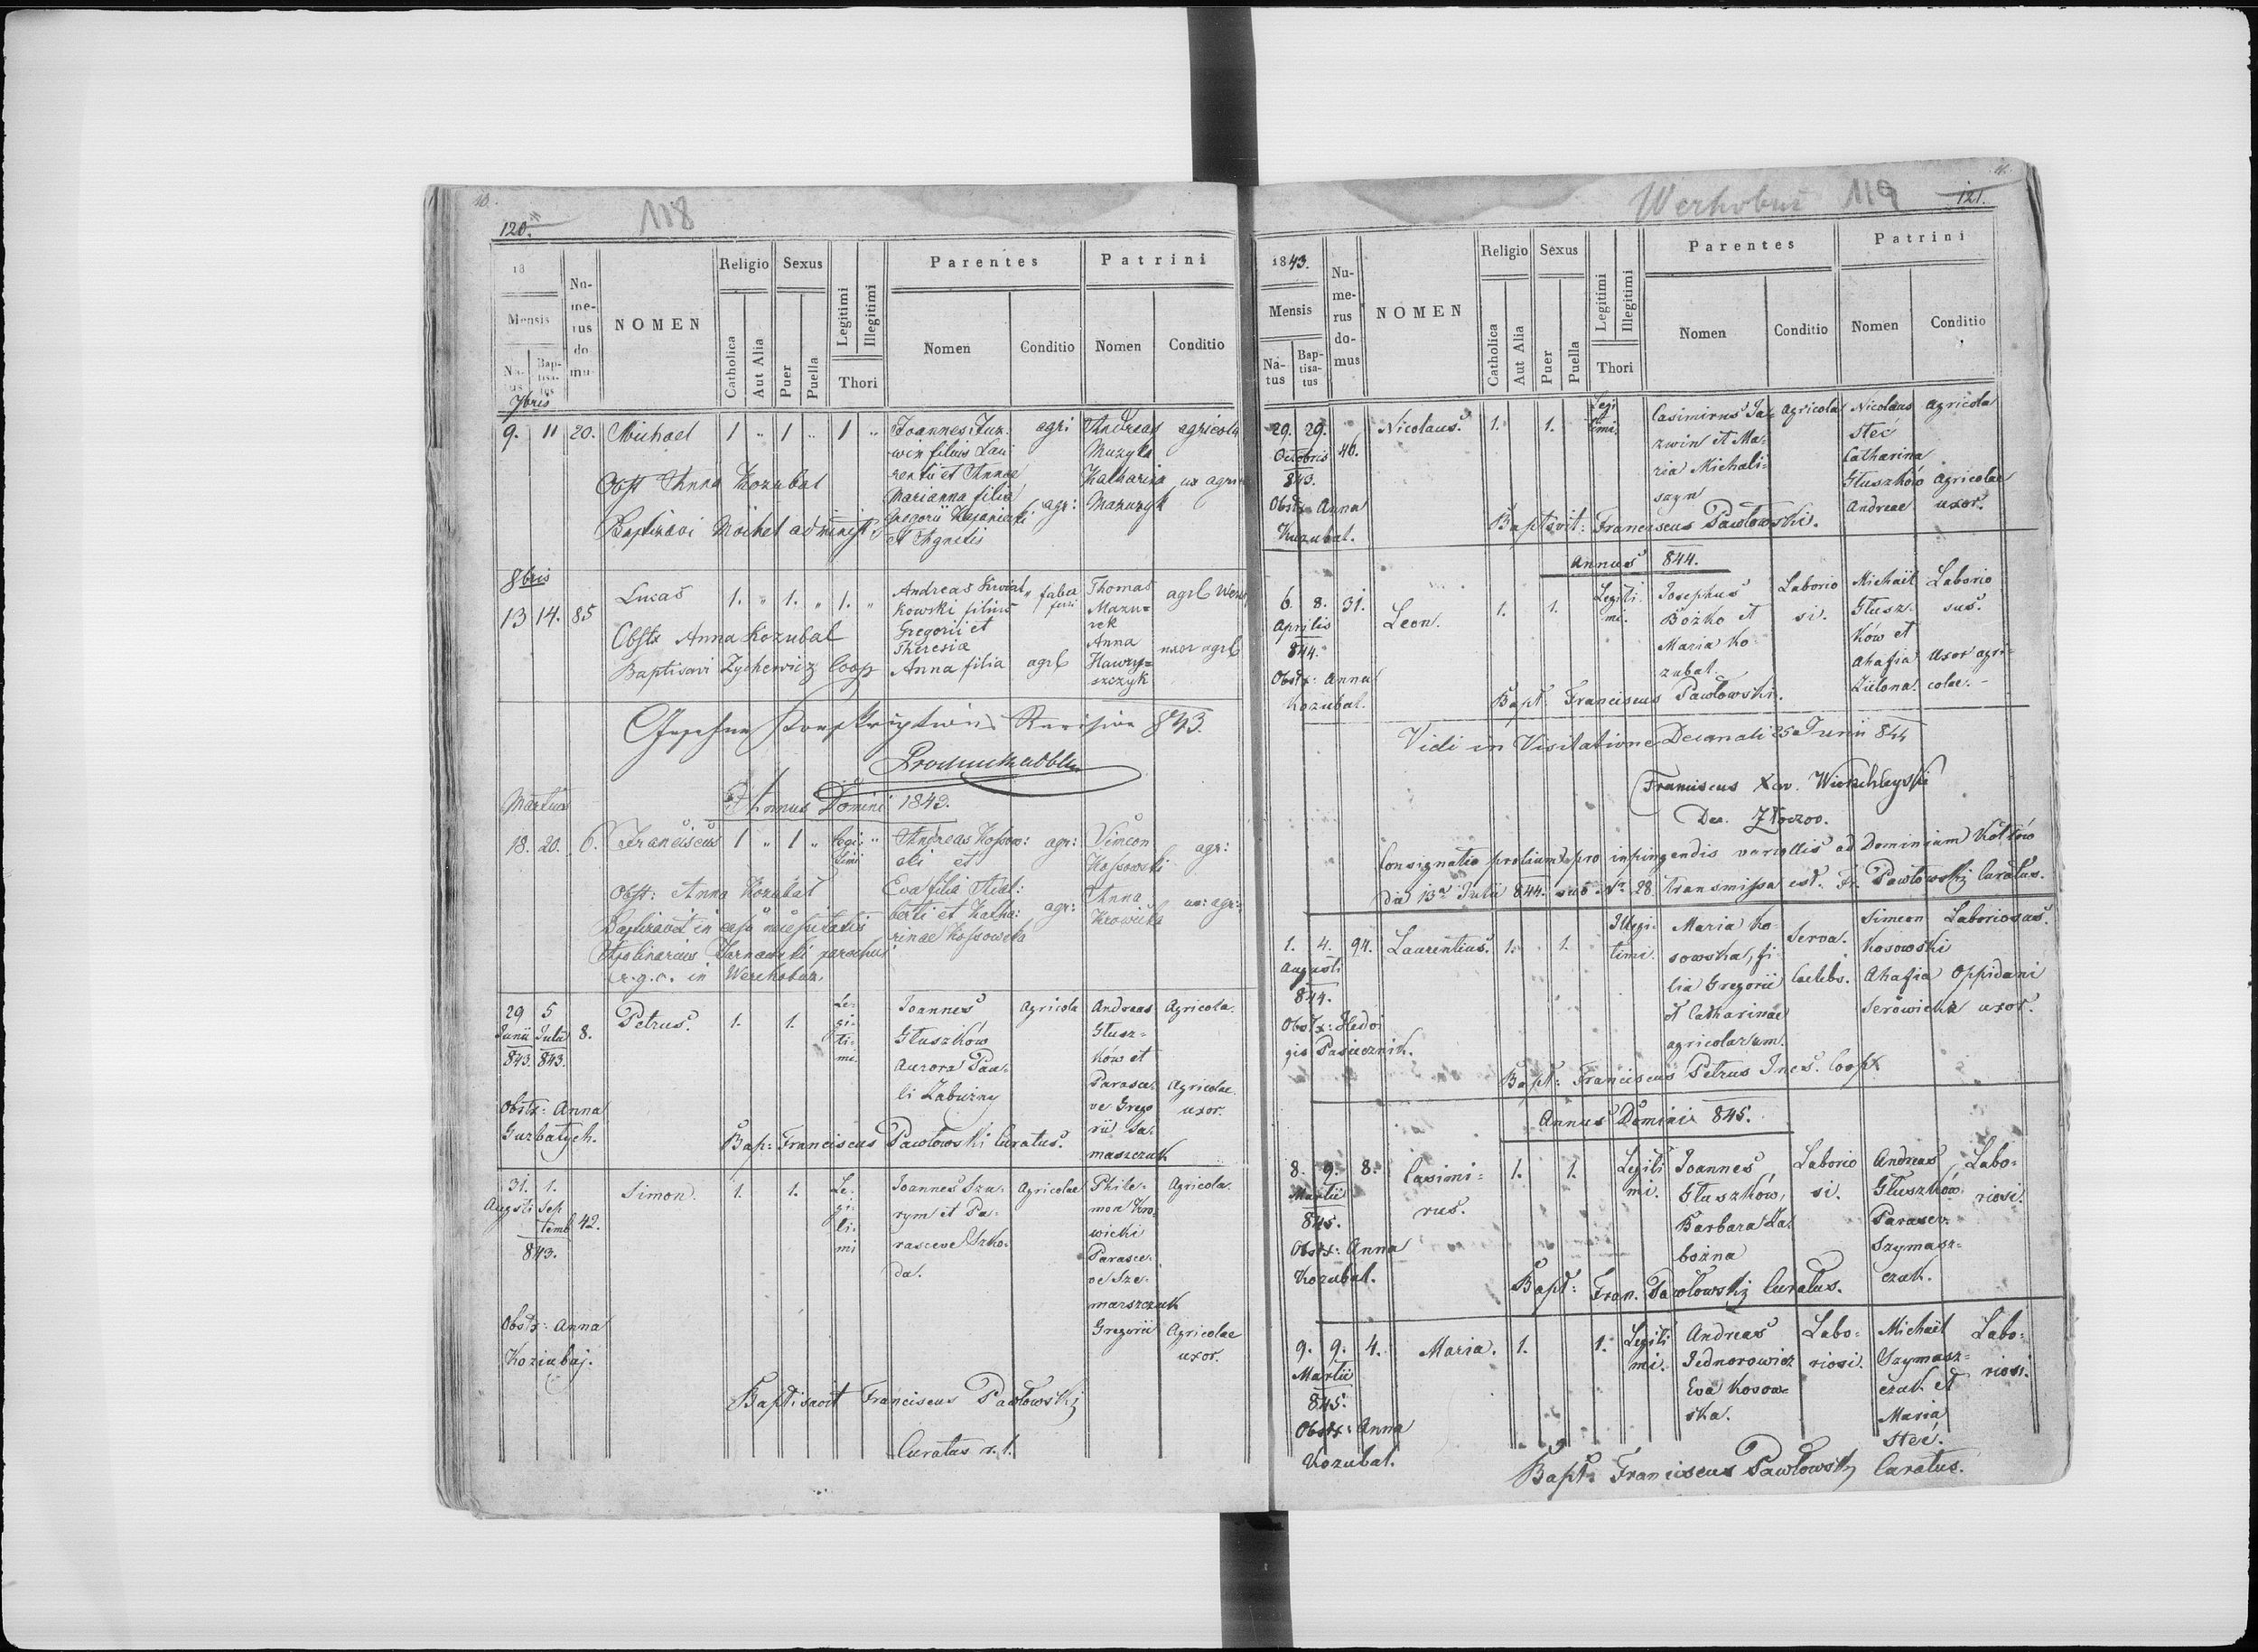 10.
120.
118
18
Mensis
Na-
tus
Bap-
tisa-
tus
Nu-
me-
rus
do-
mus
NOMEN
Religio
Catholica
Aut Alia
Sexus
Puer
Puella
Legitimi
Illegitimi
Thori
Parentes
Nomen
Conditio
Patrini
Nomen
Conditio
7bris
9. 11 20. Michael 1 " 1 " 1 "
Joannes Juz-
win filius Lau
rentii et Annae
Marianna filia
Gregorii
et Agnetis
agri
agr:
Andreas
Muzyka
Katharina
Mazuryk
agricola
ux agri
Obst Anna Kozubal
Baptizavi Möihel administ
8bris
13 14. 85 Lucas 1. " 1. " 1. "
Andreas Kwiat
kowski filius
Gregorii et
Theresia
Anna filia
faber
ferri
agrl
Thomas
Mazu-
rek
Anna
Hawry-
szczyk
agrl Werch
uxor agrl
Obstx Anna Kozubal
Baptisavi Zycherwicz Coop
Revision 843.
Annus Domini 1843.
Martius
18. 20. 6. Franciscus 1 " 1 " Legi-
timi "
Andreas Kossow:
ski et
Eva filia Adal:
berti et Katha:
rinae Kossowska
agr:
agr:
Simeon
Kossowski
Anna
Krowicka
agr:
ux: agr:
Obst: Anna Kozubal
Baptizavit in casu necessitatis
Apolinarius Tarnawski parochus
r.g.c. in Werchobuz.
29 5
Junii Julii 8.
843. 843.
Petrus. 1. 1.
Le-
gi-
ti-
mi.
Joannes
Głuszków
Aurora Pau-
li Zabużny
Agricola
Andreas
Głusz-
ków et
Parasce-
ve Grego
rii Sa-
maszczuk
Agricola.
Agricolae
uxor.
Obstx: Anna
Guzbatych.
Bap: Franciscus Pawłowski Curatus.
31. 1.
Augsti Sep
temb 42.
843.
Simon. 1. 1.
Le-
gi-
ti-
mi
Joannes Szu-
rym et Pa-
rasceve Szko-
da.
Agricolae
Phile-
mon Kro-
wicki
Parasce-
ve Sze-
marszczuk
Gregorii
Agricola.
Agricolae
uxor.
Obstx: Anna
Koziubaj.
Baptisavit Franciscus Pawłowski
Curatus r. l.
Werhobuż 119
121.
1843.
Mensis
Na-
tus
Bap-
tisa-
tus
Nu-
me-
rus
do-
mus
NOMEN
Religio
Catholica
Aut Alia
Sexus
Puer
Puella
Legitimi
Illegitimi
Thori
Parentes
Nomen
Conditio
Patrini
Nomen
Conditio
29. 29.
Octobris 46.
843.
Nicolaus. 1. 1.
Legi
timi.
Casimirus Ja-
zwin et Ma-
ria Michali-
szyn
Agricola
Nicolaus
Steć
Catharina
Głuszków
Andreae
Agricola
Agricolae
uxor.
Obstx Anna
Kuzubal.
Baptsvit: Franciscus Pawłowski.
Annus 844.
6. 8. 31.
Aprilis
844.
Leon. 1. 1.
Legiti-
mi.
Josephus
Bożko et
Maria Ko-
zubal
Laborio
si.
Michaël
Głusz-
ków et
Ahafia
Zielona.
Laborio
sus.
Uxor agri-
colae.
Obstx: Anna
Kozubal.
Bapt. Franciscus Pawłowski.
Vidi in Visitatione Decanali 25 Junii 844
Franciscus Xav.
Dec. Złoczov.
Consignatio prolium pro infingendis variollis ad Dominium Kołtów
die 13a Julii 844. sub No. 28 Transmissa est. Fr. Pawłowski Curatus.
1. 4. 94.
Augusti
844.
Laurentius. 1. 1.
Illegi-
timi.
Maria Ko-
sowska, fi-
lia Gregorii
et Catharinae
agricolarum.
Serva.
Caelebs.
Simeon
Kosowski
Ahafia
Serowicka
Laboriosus.
Oppidani
uxor.
Obstx: Hedvi
gis Pasiecznik.
Bapt: Franciscus Petrus Ines. Coop
Annus Domini 845.
8. 9. 8.
Martii
845.
Casimi-
rus.
1. 1.
Legiti
mi.
Joannes
Głuszków,
Barbara Za-
bożna
Laborio
si.
Andreas
Głuszków
Parascev.
Szymasz-
czak.
Labo-
riosi.
Obstx: Anna
Kozubal.
Bapt: Fran. Pawłowski Curatus.
9. 9. 4.
Martii
845.
Maria. 1. 1.
Legiti
mi.
Andreas
Jednorowicz
Eva Kosow-
ska.
Labo-
riosi.
Michaël
Szymasz-
czak et
Maria
Steć.
Labo-
riosi.
Obstx: Anna
Kozubal.
Bapt: Franciscus Pawłowski Curatus.